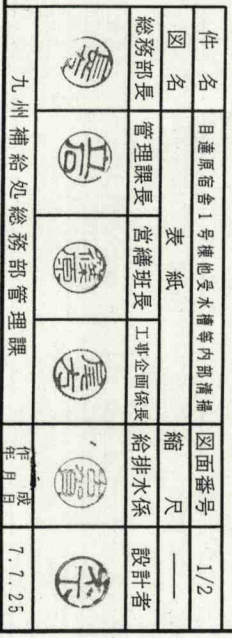 件名 目達原宿舎1号棟他受水槽等内部清掃 図面番号 1/2
図名 表紙 縮尺 ――
総務部長 管理課長 営繕班長 工事企画係長 給排水係 設計者
篠原 尾方 古賀
九州補給処総務部管理課 作成年月日 7.7.25